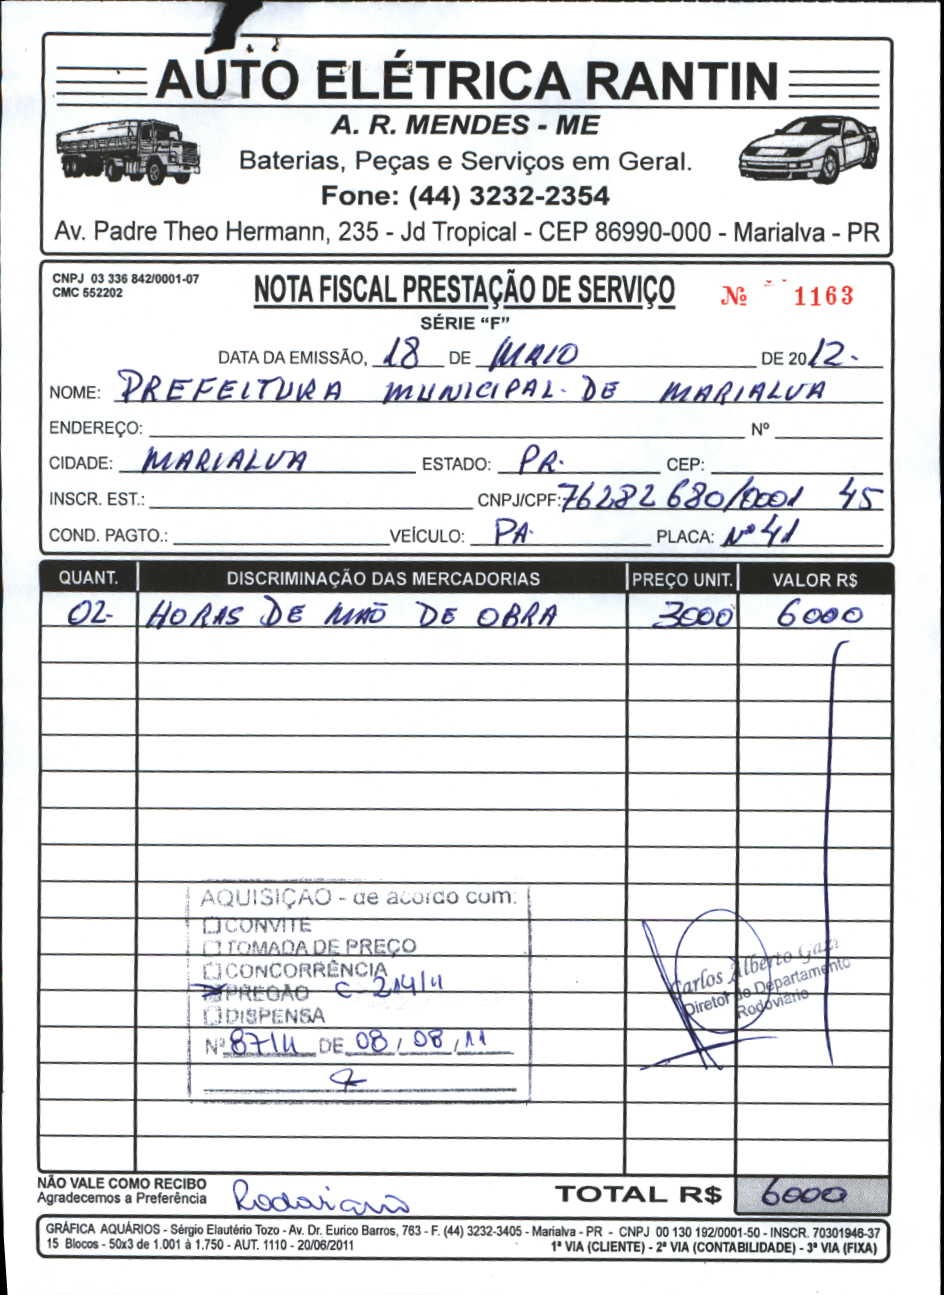 AUTO ELÉTRICA RANTIN
A. R. MENDES - ME
Baterias, Peças e Serviços em Geral.
Fone: (44) 3232-2354
Av. Padre Theo Hermann, 235 - Jd Tropical - CEP 86990-000 - Marialva - PR
CNPJ 03 336 842/0001-07
CMC 552202
NOTA FISCAL PRESTAÇÃO DE SERVIÇO
Nº 1163
SÉRIE “F”
DATA DA EMISSÃO, 18 DE MAIO DE 2012.
NOME: PREFEITURA MUNICIPAL DE MARIALVA
ENDEREÇO: Nº
CIDADE: MARIALVA ESTADO: PR. CEP:
INSCR. EST.: CNPJ/CPF: 76282680/0001 45
COND. PAGTO.: VEÍCULO: PA. PLACA: Nº 41
QUANT. DISCRIMINAÇÃO DAS MERCADORIAS PREÇO UNIT. VALOR R$
02- HORAS DE MÃO DE OBRA 3000 6000
AQUISIÇÃO - de acordo com:
CONVITE
TOMADA DE PREÇO
CONCORRÊNCIA
PREGÃO C-214/11
DISPENSA
Nº 87/11 DE 08/08/11
Carlos Alberto Gazi
Diretor do Departamento
Rodoviário
NÃO VALE COMO RECIBO
Agradecemos a Preferência
Rodoviario
TOTAL R$ 6000
GRÁFICA AQUÁRIOS - Sérgio Elautério Tozo - Av. Dr. Eurico Barros, 763 - F. (44) 3232-3405 - Marialva - PR - CNPJ 00 130 192/0001-50 - INSCR. 70301946-37
15 Blocos - 50x3 de 1.001 à 1.750 - AUT. 1110 - 20/06/2011 1ª VIA (CLIENTE) - 2ª VIA (CONTABILIDADE) - 3ª VIA (FIXA)